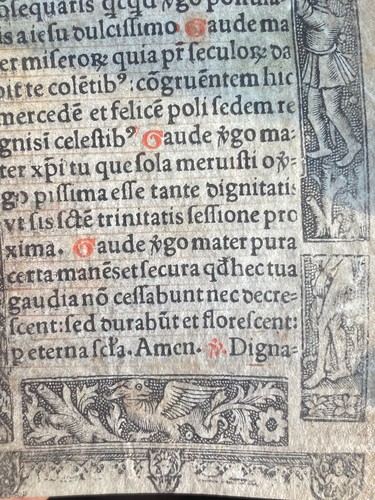 is a iesu dulcissimo Gaude ma
er miseroꝝ quia pr̄ seculoꝝ da
bit te colētib⁹: cōgruentem hic
mercedē et felicē poli sedem re
gnisi celestib⁹ Gaude v̄go ma⸗
ter xp̄i tu que sola meruisti o v̄⸗
go pissima esse tante dignitatis
vt sis sctē trinitatis sessione pro
xima. Gaude v̄go mater pura
certa manēs et secura qd̓ hec tua
gaudia nō cessabunt nec decre⸗
scent: sed durabūt et florescent:
p eterna scľa. Amen. ℣. Digna⸗